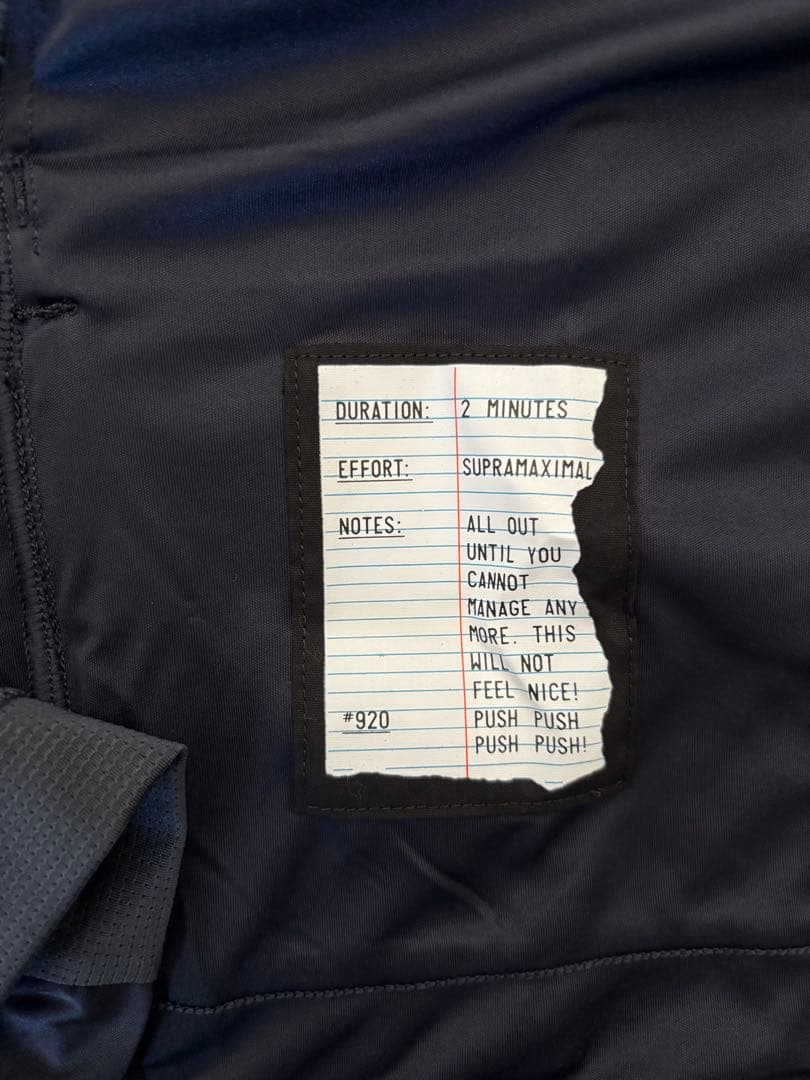 DURATION: 2 MINUTES
EFFORT: SUPRAMAXIMAL
NOTES: ALL OUT
UNTIL YOU
CANNOT
MANAGE ANY
MORE. THIS
WILL NOT
FEEL NICE!
#920 PUSH PUSH
PUSH PUSH!